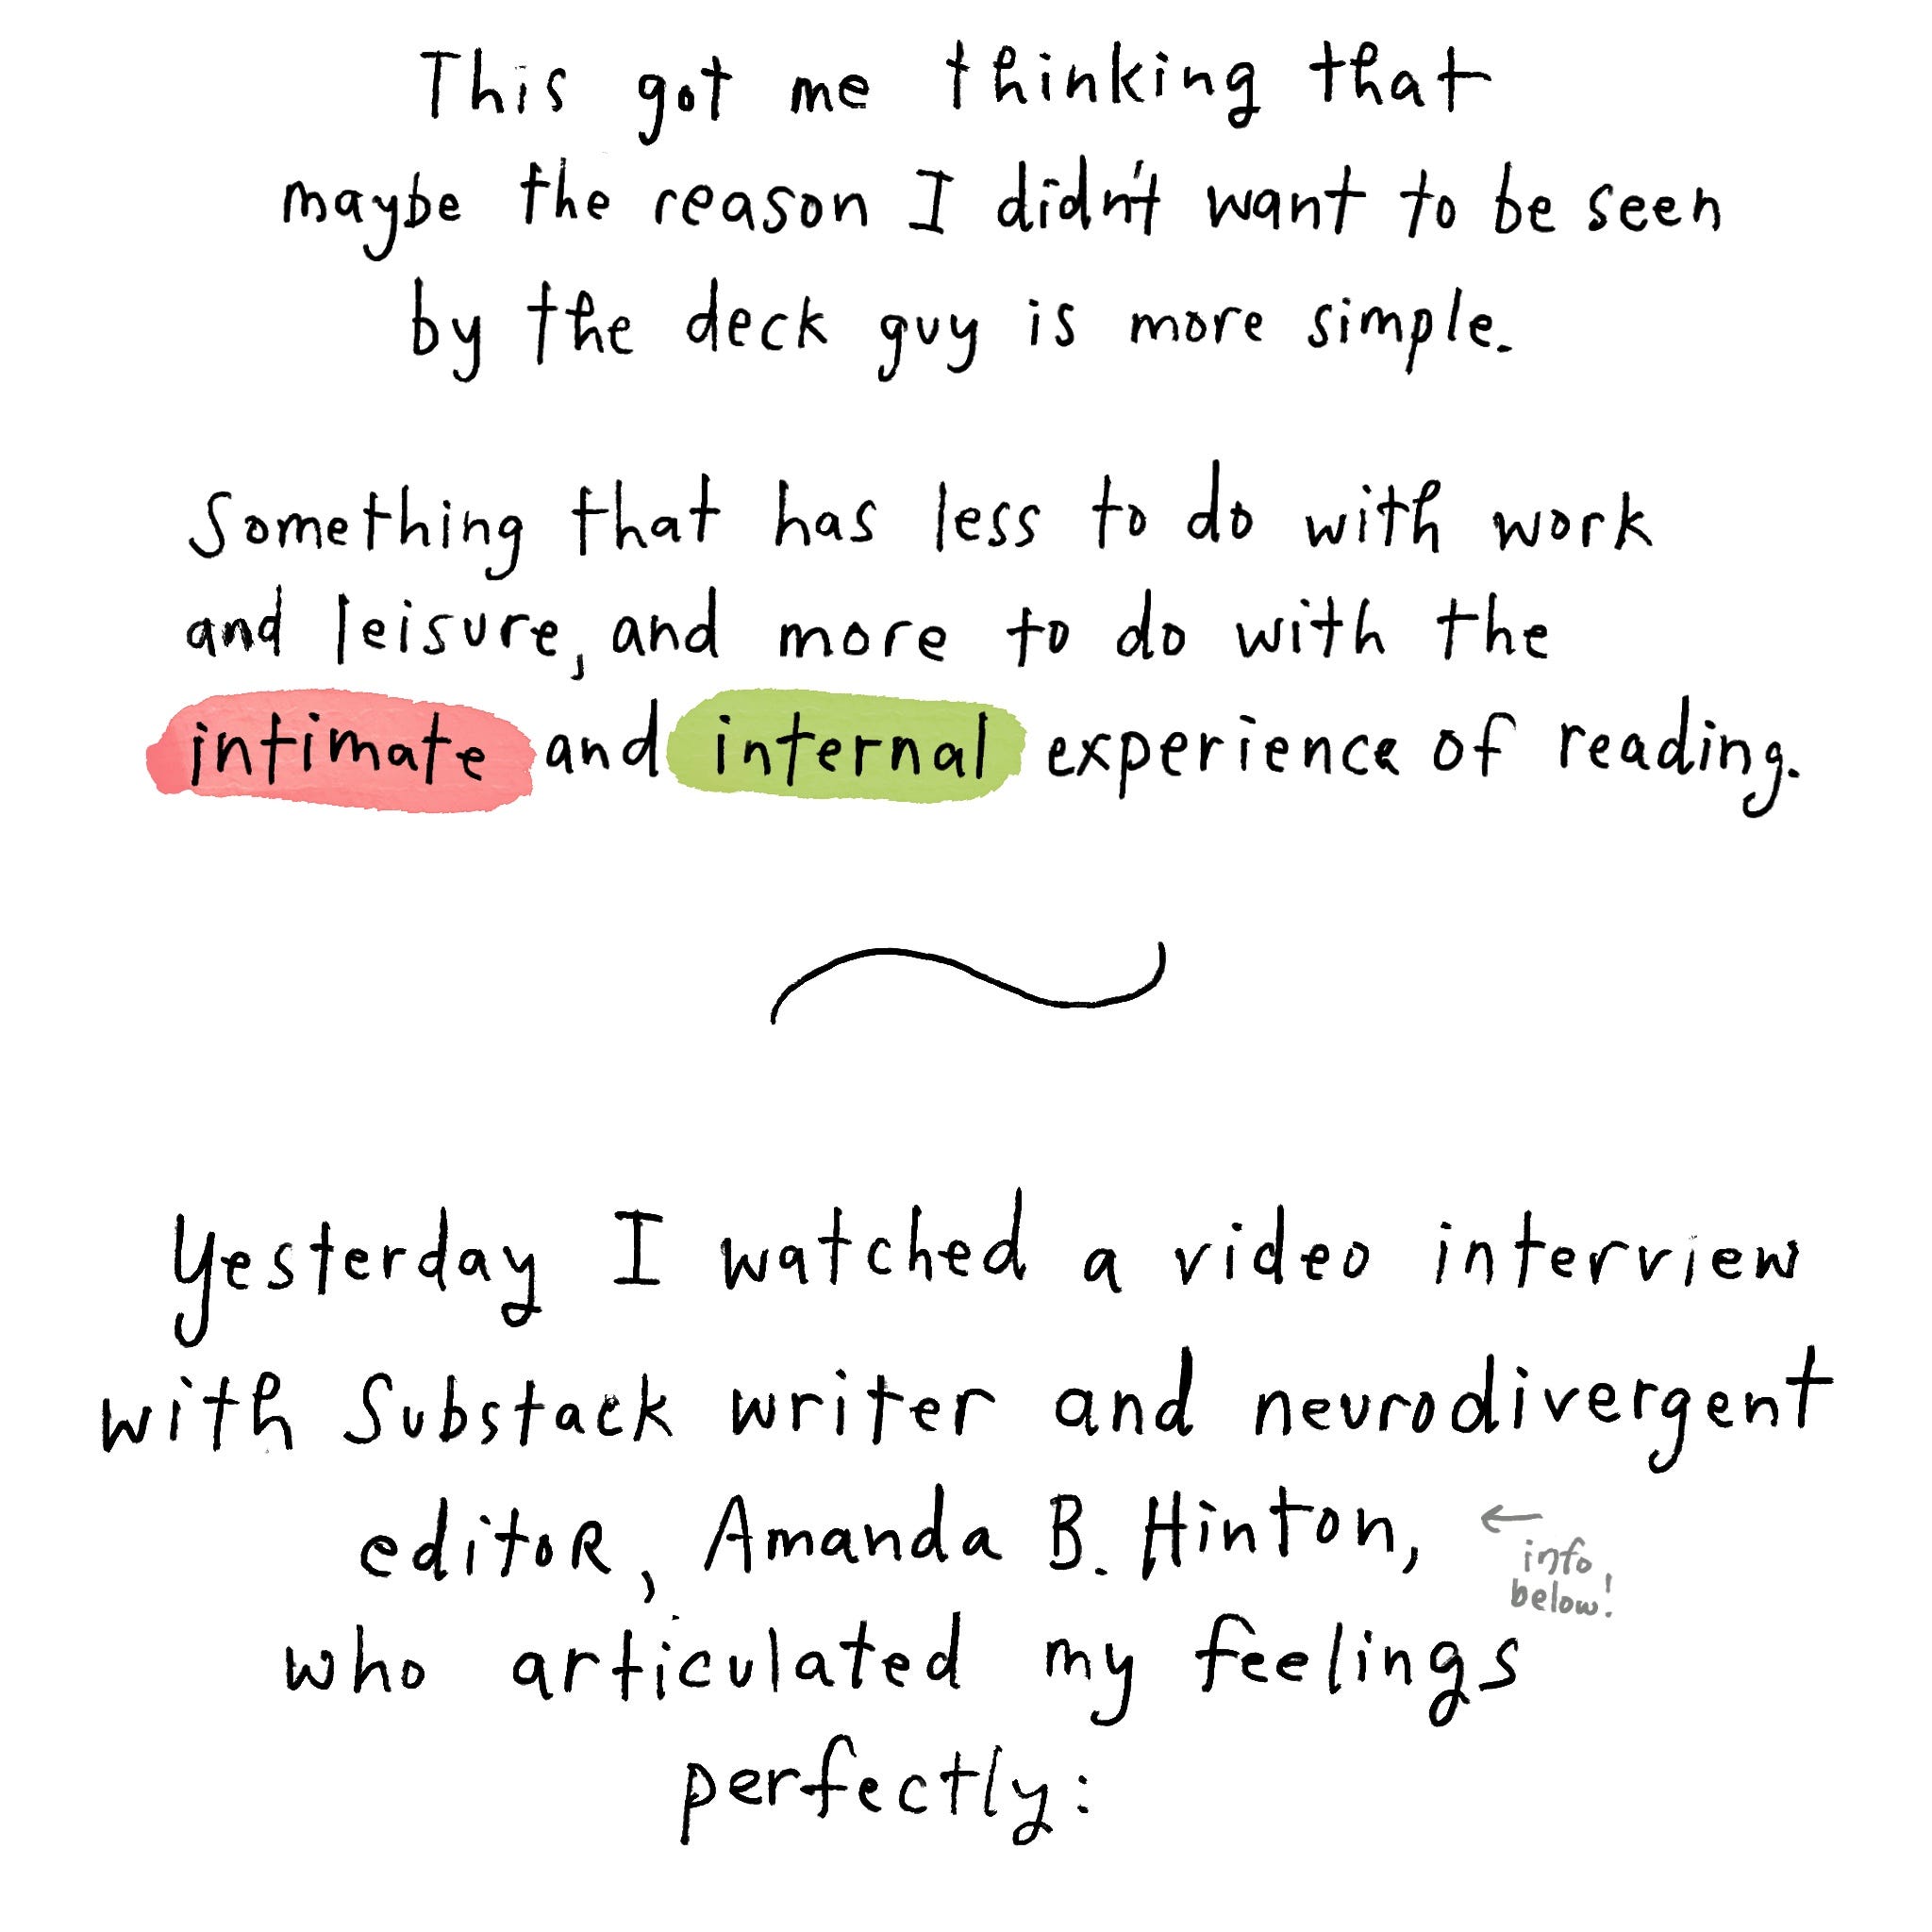 This got me thinking that
maybe the reason I didn't want to be seen
by the deck guy is more simple.
Something that has less to do with work
and leisure, and more to do with the
intimate and internal experience of reading.
Yesterday I watched a video interview
with Substack writer and neurodivergent
editor, Amanda B. Hinton,
← info
below!
who articulated my feelings
perfectly: